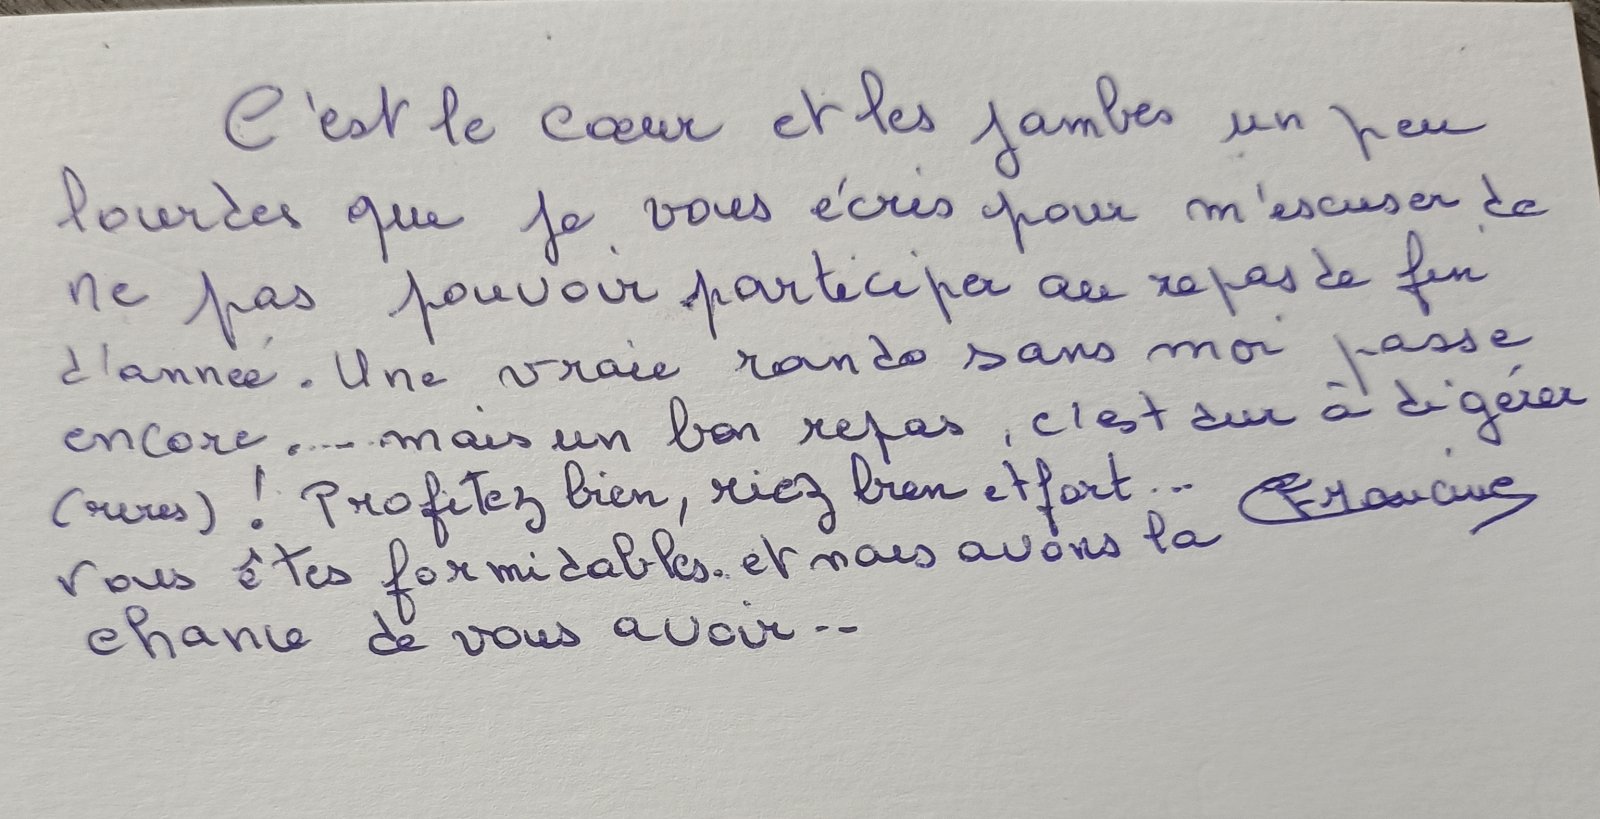 C'est le cœur et les jambes un peu
lourdes que je vous écris pour m'escuser de
ne pas pouvoir participer au repas de fin
d'année. Une vraie rando sans moi passe
encore.... mais un bon repas, c'est dur à digérer
(rires) ! Profitez bien, riez bien et fort... Francine
vous êtes formidables. et nous avons la
chance de vous avoir..